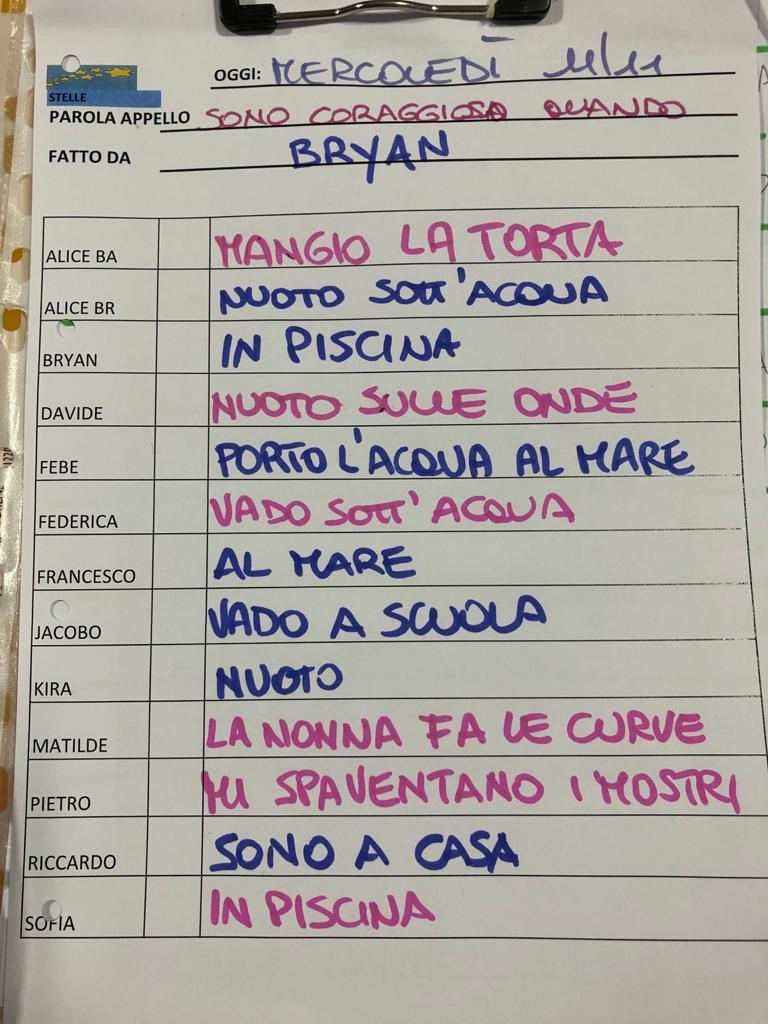 STELLE
OGGI: MERCOLEDÌ 11/11
PAROLA APPELLO SONO CORAGGIOSA QUANDO
FATTO DA BRYAN
ALICE BA MANGIO LA TORTA
ALICE BR NUOTO SOTT'ACQUA
BRYAN IN PISCINA
DAVIDE NUOTO SULLE ONDE
FEBE PORTO L'ACQUA AL MARE
FEDERICA VADO SOTT'ACQUA
FRANCESCO AL MARE
JACOBO VADO A SCUOLA
KIRA NUOTO
MATILDE LA NONNA FA LE CURVE
PIETRO MI SPAVENTANO I MOSTRI
RICCARDO SONO A CASA
SOFIA IN PISCINA